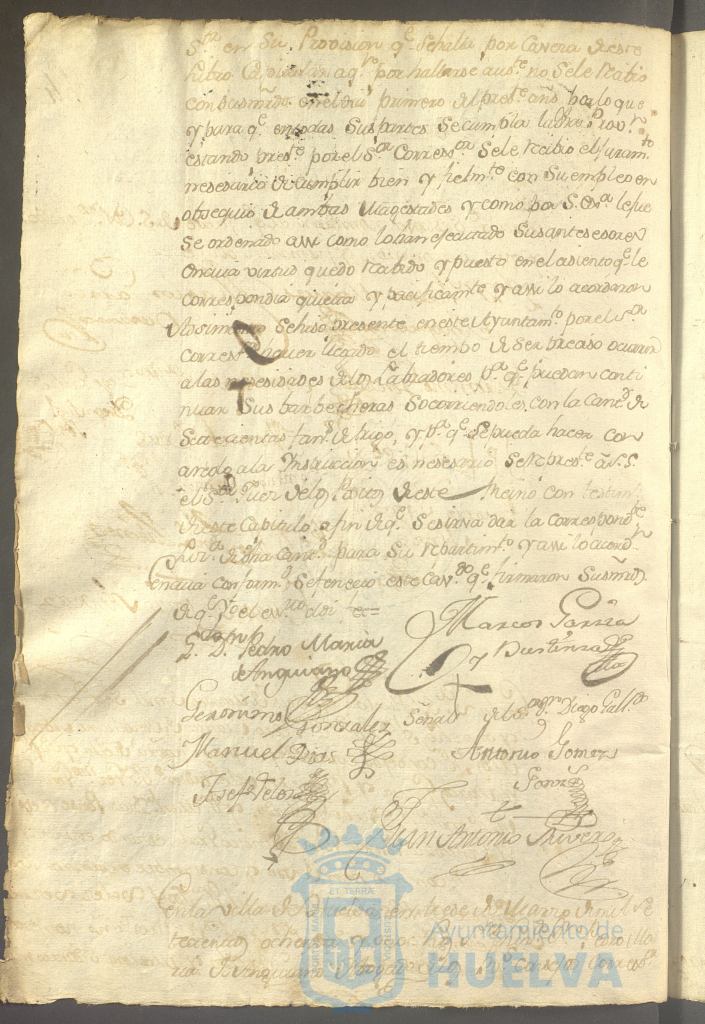 S.ra en Su Provision q.e Sehalla por Cavera de este
Libro Capitular a q.n por hallarse aus.te no Sele recibio
con susmrds. en el dia primero del pres.te año, por lo que
y para q.e en todas Sus partes Se cumpla la Prov.n
estando pres.te por el S.or Corres.or Sele recibio el juram.to
nesesario de cumplir bien y fielm.te con Su empleo en
obsequio de ambas Magestades y como por S. Ex.a le fue
Se ordenado assi como lo han ejecutado Sus antesesores
En cuia virtud quedo recibido y puesto en el asiento q.e le
Correspondia quieta y pacificam.te y assi lo acordaron
Assimismo Sehiso presente en este Ayuntam.to por el S.or
Corres.or haver llegado el tiempo de Ser preciso ocurrir
a las nesesidades de los Labradores p.a q.e puedan conti
nuar Sus barbecheras Socorriendoles con la Cant.d de
Seiscientas fan.s de trigo, y p.a q.e Se pueda hacer con
arreglo a la Instruccion es nesesario Se represte. a V.S.
el S.or Juez de los Positos de este Reino con testim.o
de este Capitulo a fin de q.e Se sirva dar la correspond.te
Liz.a de dha Cant.d para Su repartim.to y assi lo acord.n
En cuia conform.d Se fenecio este Cav.do q.e firmaron Susmrds.
de q.e Yo el es.no doi fe=
L. D. Pedro Maria
de Anguiano
Marcos Garsia
y Bustenza
Geronimo Gonzalez
Señal + del S.or D.n Diego Gall.do
Manuel Dias
Antonio Gomez
Josef Velo
Juan Antonio Rivero
En la villa de Huelva en trese de Marzo de mil Se
tecientos ochenta y
ria de Anguiano Abogado de los R.s Consejos Corres.or
PORTUS MARIS ET TERRAE CUSTODIA
Ayuntamiento de
HUELVA